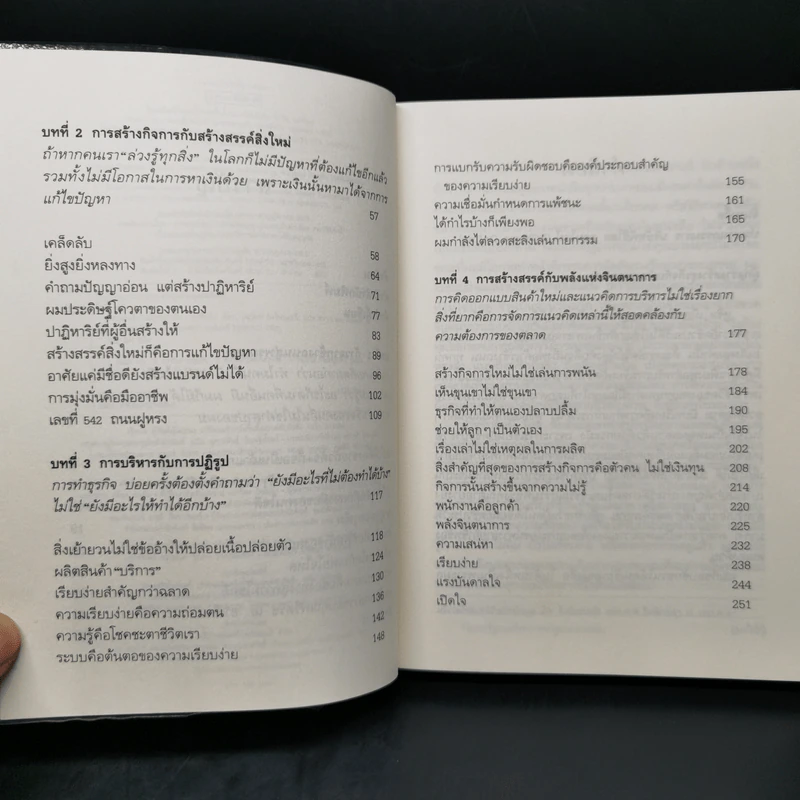 บทที่ 2 การสร้างกิจการกับสร้างสรรค์สิ่งใหม่
ถ้าหากคนเรา“ล่วงรู้ทุกสิ่ง” ในโลกก็ไม่มีปัญหาที่ต้องแก้ไขอีกแล้ว
รวมทั้งไม่มีโอกาสในการหาเงินด้วย เพราะเงินนั้นหามาได้จากการ
แก้ไขปัญหา 57
เคล็ดลับ 58
ยิ่งสูงยิ่งหลงทาง 64
คำถามปัญญาอ่อน แต่สร้างปาฏิหาริย์ 71
ผมประดิษฐ์โควตาของตนเอง 77
ปาฏิหาริย์ที่ผู้อื่นสร้างให้ 83
สร้างสรรค์สิ่งใหม่ก็คือการแก้ไขปัญหา 89
อาศัยแค่มีชื่อดียังสร้างแบรนด์ไม่ได้ 96
การมุ่งมั่นคือมืออาชีพ 102
เลขที่ 542 ถนนฝูหรง 109
บทที่ 3 การบริหารกับการปฏิรูป
การทำธุรกิจ บ่อยครั้งต้องตั้งคำถามว่า “ยังมีอะไรที่ไม่ต้องทำได้บ้าง”
ไม่ใช่ “ยังมีอะไรให้ทำได้อีกบ้าง” 117
สิ่งเย้ายวนไม่ใช่ข้ออ้างให้ปล่อยเนื้อปล่อยตัว 118
ผลิตสินค้า“บริการ” 124
เรียบง่ายสำคัญกว่าฉลาด 130
ความเรียบง่ายคือความถ่อมตน 136
ความรู้คือโชคชะตาชีวิตเรา 142
ระบบคือต้นตอของความเรียบง่าย 148
การแบกรับความรับผิดชอบคือองค์ประกอบสำคัญ
ของความเรียบง่าย 155
ความเชื่อมั่นกำหนดการแพ้ชนะ 161
ได้กำไรบ้างก็เพียงพอ 165
ผมกำลังไต่ลวดสะลิงเล่นกายกรรม 170
บทที่ 4 การสร้างสรรค์กับพลังแห่งจินตนาการ
การคิดออกแบบสินค้าใหม่และแนวคิดการบริหารไม่ใช่เรื่องยาก
สิ่งที่ยากคือการจัดการแนวคิดเหล่านี้ให้สอดคล้องกับ
ความต้องการของตลาด 177
สร้างกิจการใหม่ไม่ใช่เล่นการพนัน 178
เห็นขุนเขาไม่ใช่ขุนเขา 184
ธุรกิจที่ทำให้ตนเองปลาบปลื้ม 190
ช่วยให้ลูกๆ เป็นตัวเอง 195
เรื่องเล่าไม่ใช่เหตุผลในการผลิต 202
สิ่งสำคัญที่สุดของการสร้างกิจการคือตัวคน ไม่ใช่เงินทุน 208
กิจการนั้นสร้างขึ้นจากความไม่รู้ 214
พนักงานคือลูกค้า 220
พลังจินตนาการ 225
ความเสน่หา 232
เรียบง่าย 238
แรงบันดาลใจ 244
เปิดใจ 251